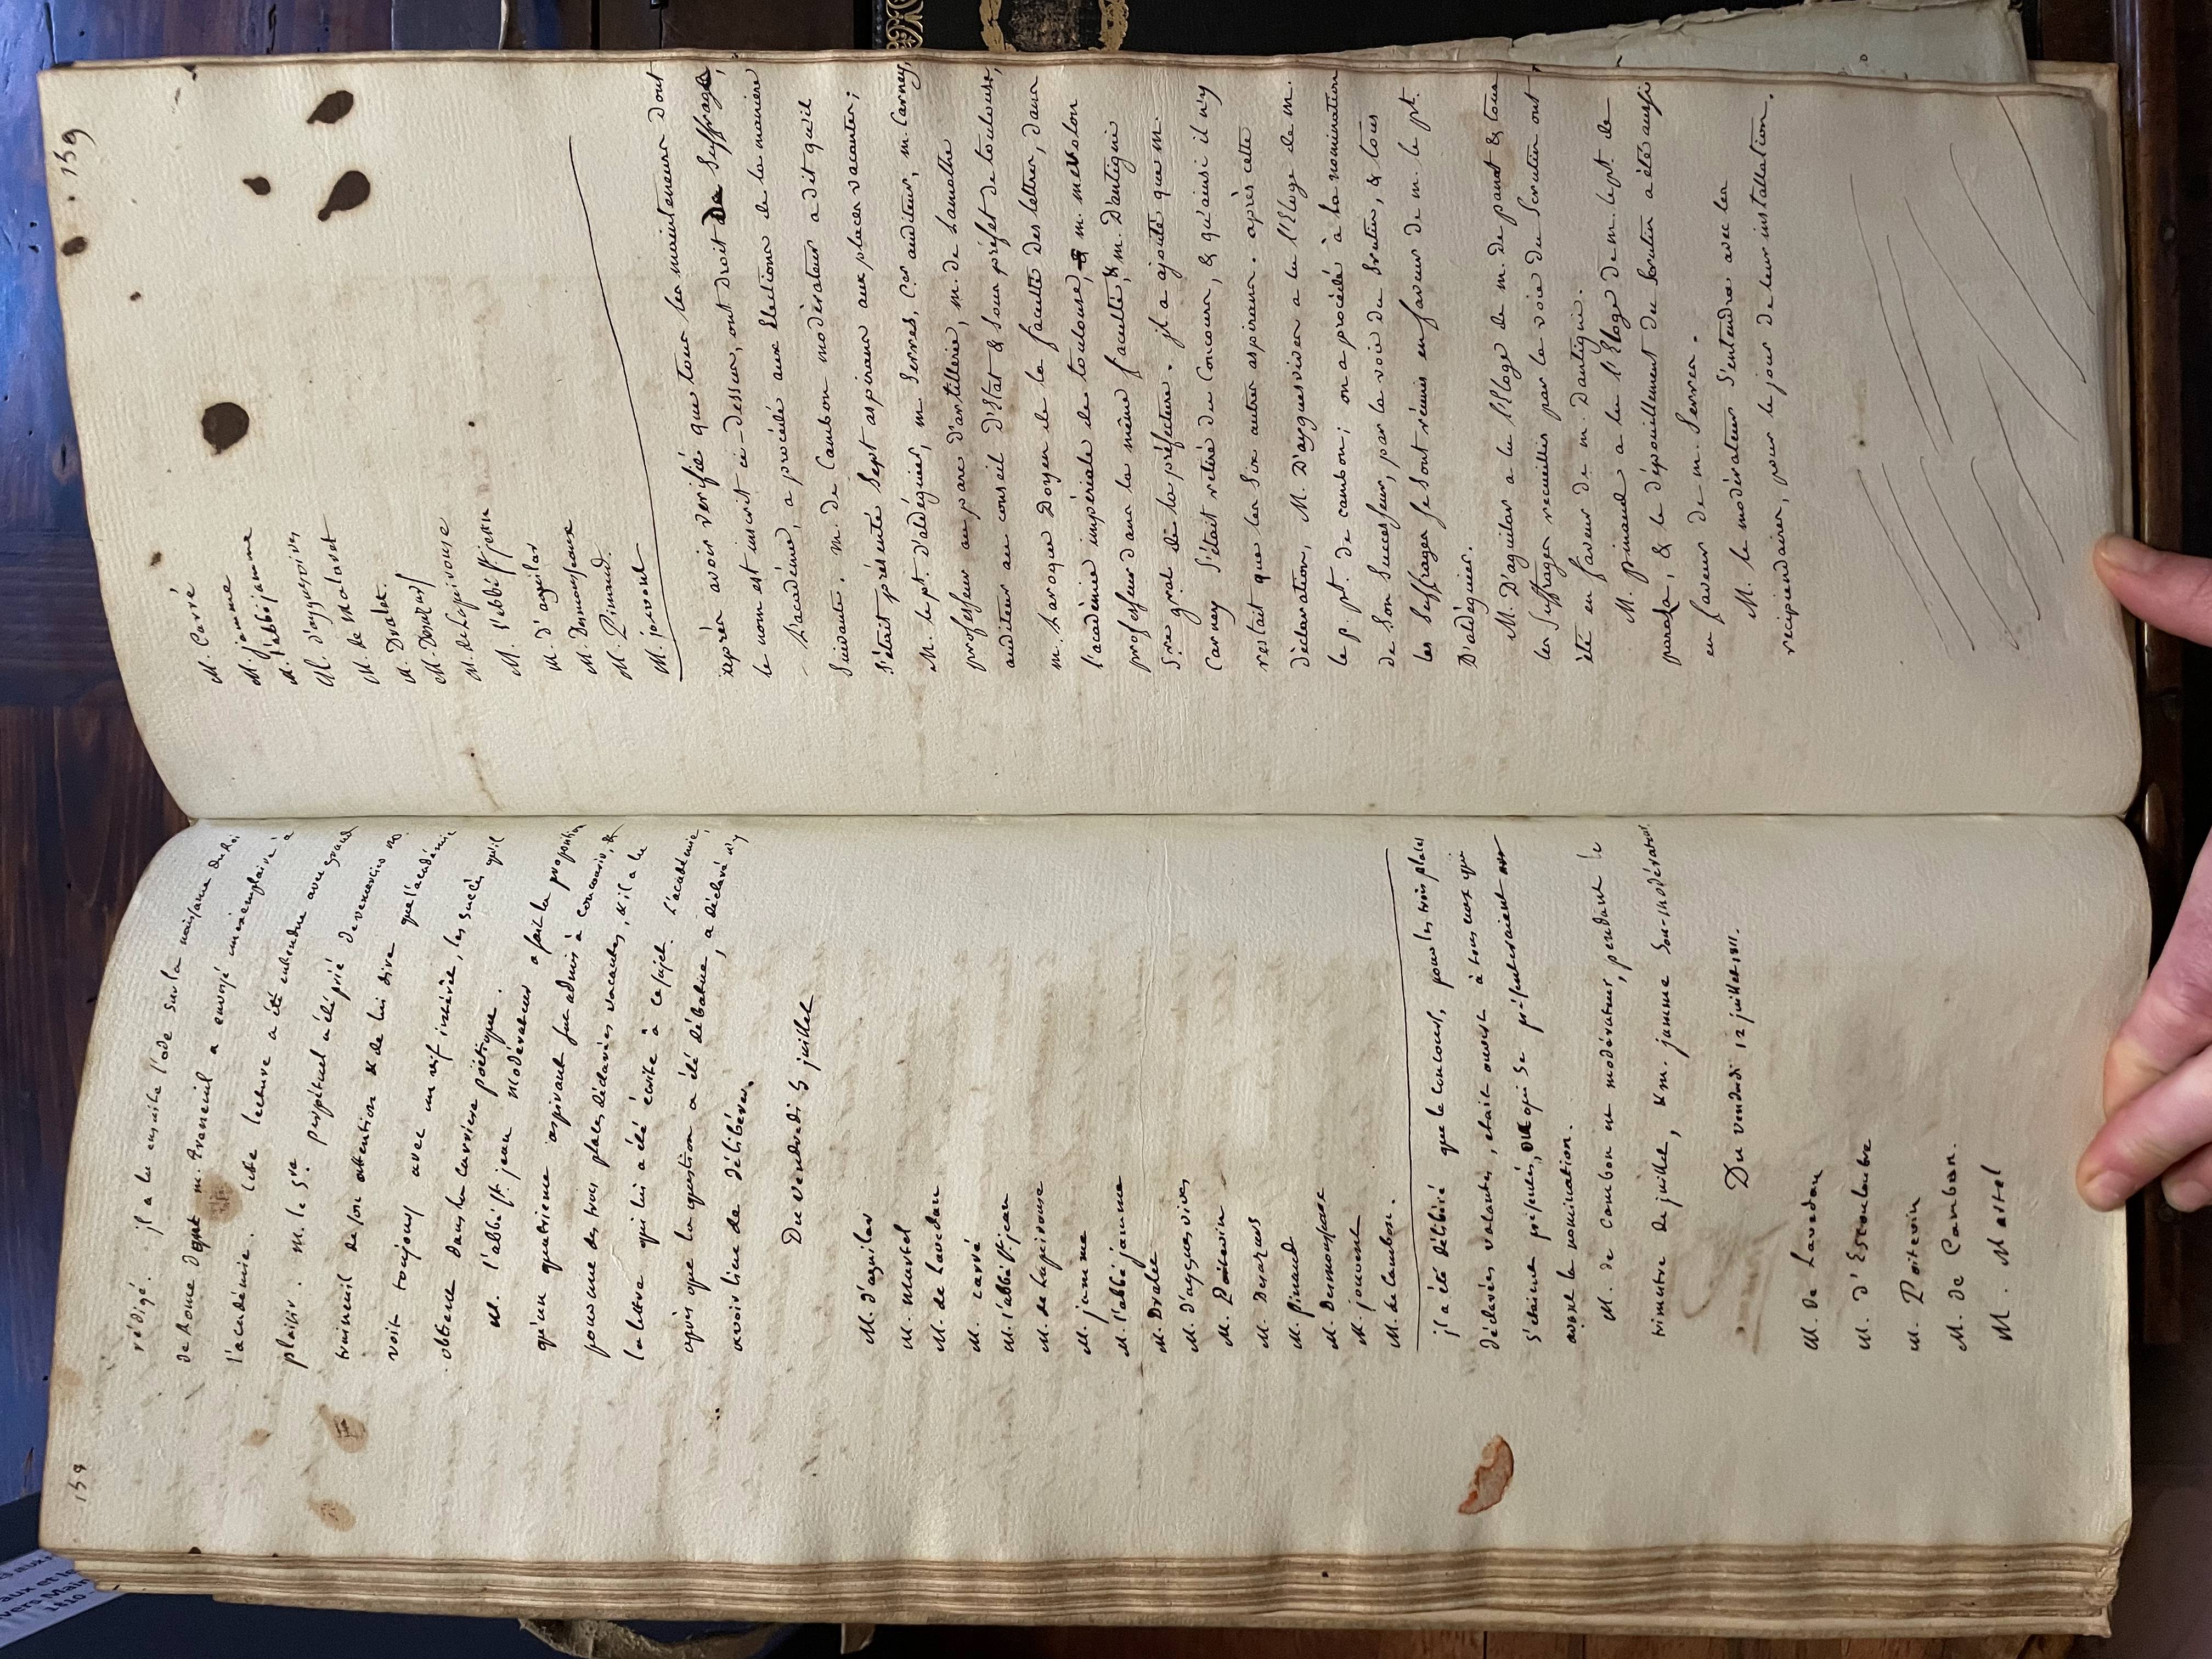 158
rédigé. il a lu ensuite l'ode sur la naissance du Roi
de Rome dont m. treneuil a envoyé un exemplaire à
l'académie. cette lecture a été entendue avec grand
plaisir. M. le Sre. perpétuel a été prié de remercier m.
treneuil de son attention & de lui dire que l'académie
voit toujours avec un vif intérêt, les succès qu'il
obtient dans la carrière poëtique.
M. l'abbé St. jean modérateur a fait la proposition
qu'un quatrieme aspirant fut admis à concourir, &
pour une des trois places déclarées vacantes, & il a lu
la lettre qui lui a été écrite à ce sujet. L'académie,
après que la question a été débattue, a déclaré n'y
avoir lieu de délibérer.
Du Vendredi 5 juillet
M. d'aguilar
M. martel
M. de Lavedan
M. carré
M. l'abbé St. jean
M. de Lapeirouse
M. jamme
M. l'abbé jamme
M. Dralet
M. d'ayguesvives
M. Poitevin
M. Desazars
M. Pinaud
M. Desmousseaux
M. jouvent
M. de Cambon.
il a été délibéré que le concours, pour les trois places
déclarées vacantes, etait ouvert à tous ceux qui
s'etaient présentés, ou qui se présenteraient
avant la nomination.
M. de Cambon est modérateur, pendant le
trimestre de juillet, & m. jamme Sous-modérateur.
Du vendredi 12 juillet 1811.
M. de Lavedan
M. d'Escouloubre
M. Poitevin
M. de Cambon.
M. Martel
159
M. Carré
M. jamme
M. l'abbé jamme
M. d'ayguesvives
M. de Malaret
M. Dralet.
M. Desazars
M. de Lapeirouse
M. l'abbé St. jean
M. d'aguilar
M. Desmousseaux
M. Pinaud.
M. jouvent
après avoir verifié que tous les mainteneurs dont
le nom est inscrit ci-dessus, ont droit de Suffrage,
L'académie, a procédé aux Elections de la manière
Suivante. M. de Cambon modérateur a dit qu'il
S'était présenté Sept aspirans aux places vacantes;
M. le pt. d'aldéguier, m. Serres, Cer auditeur, m. Carney,
professeur au parc d'artillerie, m. de Lamothe
auditeur au conseil d'Etat & Sous préfet de toulouse,
m. Laroque Doyen de la faculté des lettres, dans
l'académie impériale de toulouse, m.
professeur dans la même faculté, & m. D'antigni
Sre gral de la préfecture. il a ajouté que m.
Carney S'était retiré du Concours, & qu'ainsi il n'y
restait que les Six autres aspirans. après cette
déclaration, M. D'ayguesvives a lu l'Eloge de m.
le p. pt. de cambon; on a procédé à la nomination
de Son Successeur, par la voie du Scrutin, & tous
les Suffrages Se Sont réunis en faveur de m. le pt.
D'aldéguier.
M. D'aguilar a lu l'Eloge de m. de & tous
les Suffrages recueillis par la voie du Scrutin ont
été en faveur de m. Dantigni.
M. pinaud a lu l'Eloge de m. le pt. de
& le dépouillement du Scrutin a été aussi
en faveur de m. Serres.
M. le modérateur S'entendra avec les
récipiendaires, pour le jour de leur installation.